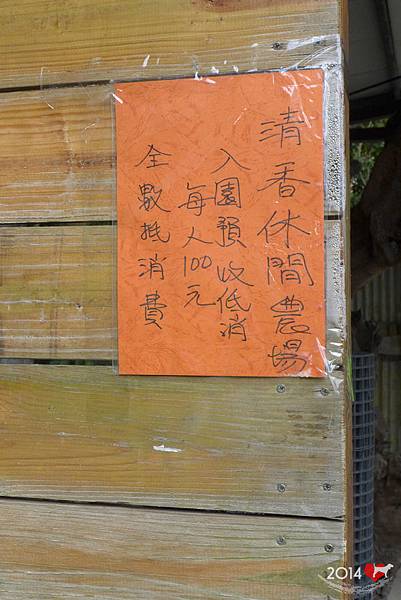 清香休閒農場
入園預收低消
每人100元
全數抵消費
2014